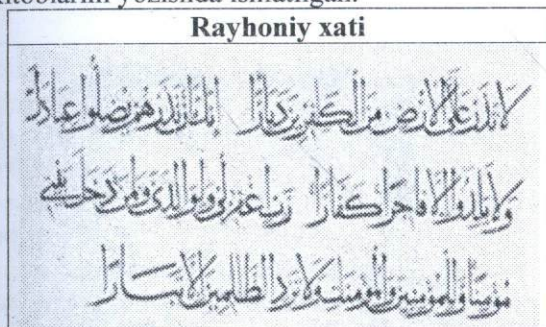 kitoblarini yozishda ishlatilgan.
Rayhoniy xati
لا تذر على الارض من الكفرين ديارا انك ان تذرهم يضلوا عبادك
ولا يلدوا الا فاجرا كفارا رب اغفر لي ولوالدي ولمن دخل بيتي
مؤمنا وللمؤمنين والمؤمنات ولا تزد الظالمين الا تبارا